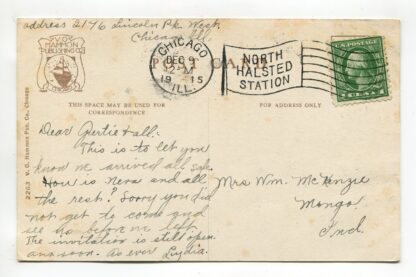 address 2176 Lincoln Pk. West
Chicago Ill.
V.O.
HAMMON
PUBLISHING CO
CHICAGO
POST CARD
CHICAGO
DEC 9
12-M
1915
ILL.
NORTH
HALSTED
STATION
U.S. POSTAGE
THIS SPACE MAY BE USED FOR
CORRESPONDENCE
FOR ADDRESS ONLY
2203 V. O. Hammon Pub. Co., Chicago
Dear Gertie & all:
This is to let you
know we arrived all safe.
How is Neva and all
the rest? Sorry you did
not get to come and
see us before we left.
The invitation is still open.
Ans soon. As ever Lydia.
Mrs Wm. McKenzie
Mongo.
Ind.